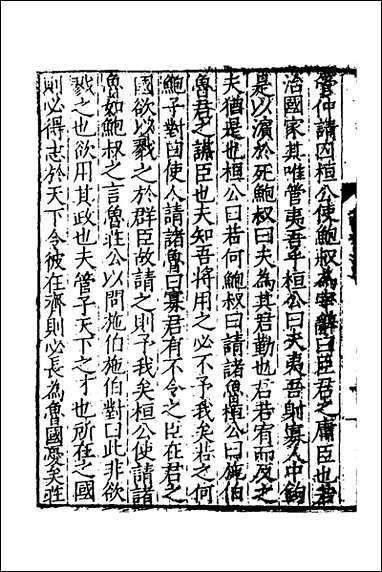 管仲請囚桓公使鮑叔為宰辭曰臣君之庸臣也若
治國家其唯管夷吾乎桓公曰夫夷吾射寡人中鉤
是以濱於死鮑叔曰夫為其君勤也君若宥而反之
夫猶是也桓公曰若何鮑叔曰請諸魯桓公曰施伯
魯君之謀臣也夫知吾將用之必不予我矣若之何
鮑子對曰使人請諸魯曰寡君有不令之臣在君之
國欲以戮之於群臣故請之則予我矣桓公使請諸
魯如鮑叔之言魯莊公以問施伯施伯對曰此非欲
戮之也欲用其政也夫管子天下之才也所在之國
則必得志於天下令彼在齊則必長為魯國憂矣莊